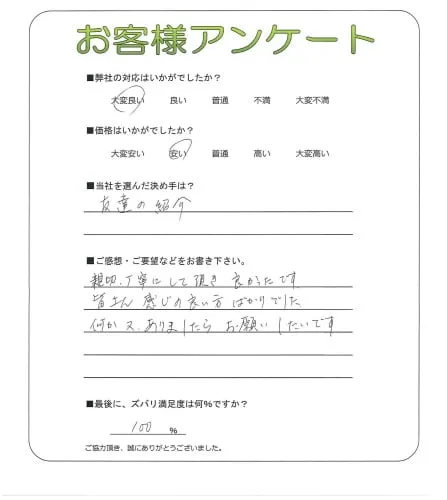 お客様アンケート
■弊社の対応はいかがでしたか?
大変良い 良い 普通 不満 大変不満
■価格はいかがでしたか?
大変安い 安い 普通 高い 大変高い
■当社を選んだ決め手は?
友達の紹介
■ご感想・ご要望などをお書き下さい。
親切、丁寧にして頂き良かったです
皆さん感じの良い方ばかりでした
何か又、ありましたらお願いしたいです
■最後に、ズバリ満足度は何%ですか?
100 %
ご協力頂き、誠にありがとうございました。